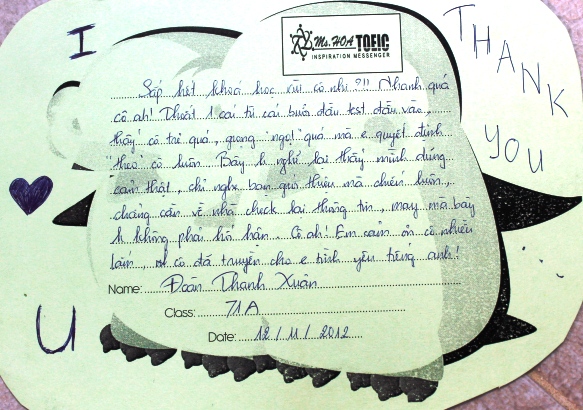 I
♥
U
THANK
YOU
Ms. HOA TOEIC
INSPIRATION MESSENGER
Sắp hết khoá học rùi cô nhỉ ?!! Nhanh quá
cô ah! Thoắt 1 cái từ cái buổi đầu test đầu vào,
thấy cô trẻ quá, giọng "ngọt" quá mà e quyết định
"theo" cô luôn. Bây h nghĩ lại thấy mình đúng
cảm thật, chỉ nghe bạn giới thiệu mà chiến luôn,
chẳng cần về nhà check lại thông tin, may mà bây
h không phải hối hận. Cô ah! Em cảm ơn cô nhiều
lắm, vì cô đã truyền cho e tình yêu tiếng anh!
Name: Đoàn Thanh Xuân
Class: 71A
Date: 12/11/2012